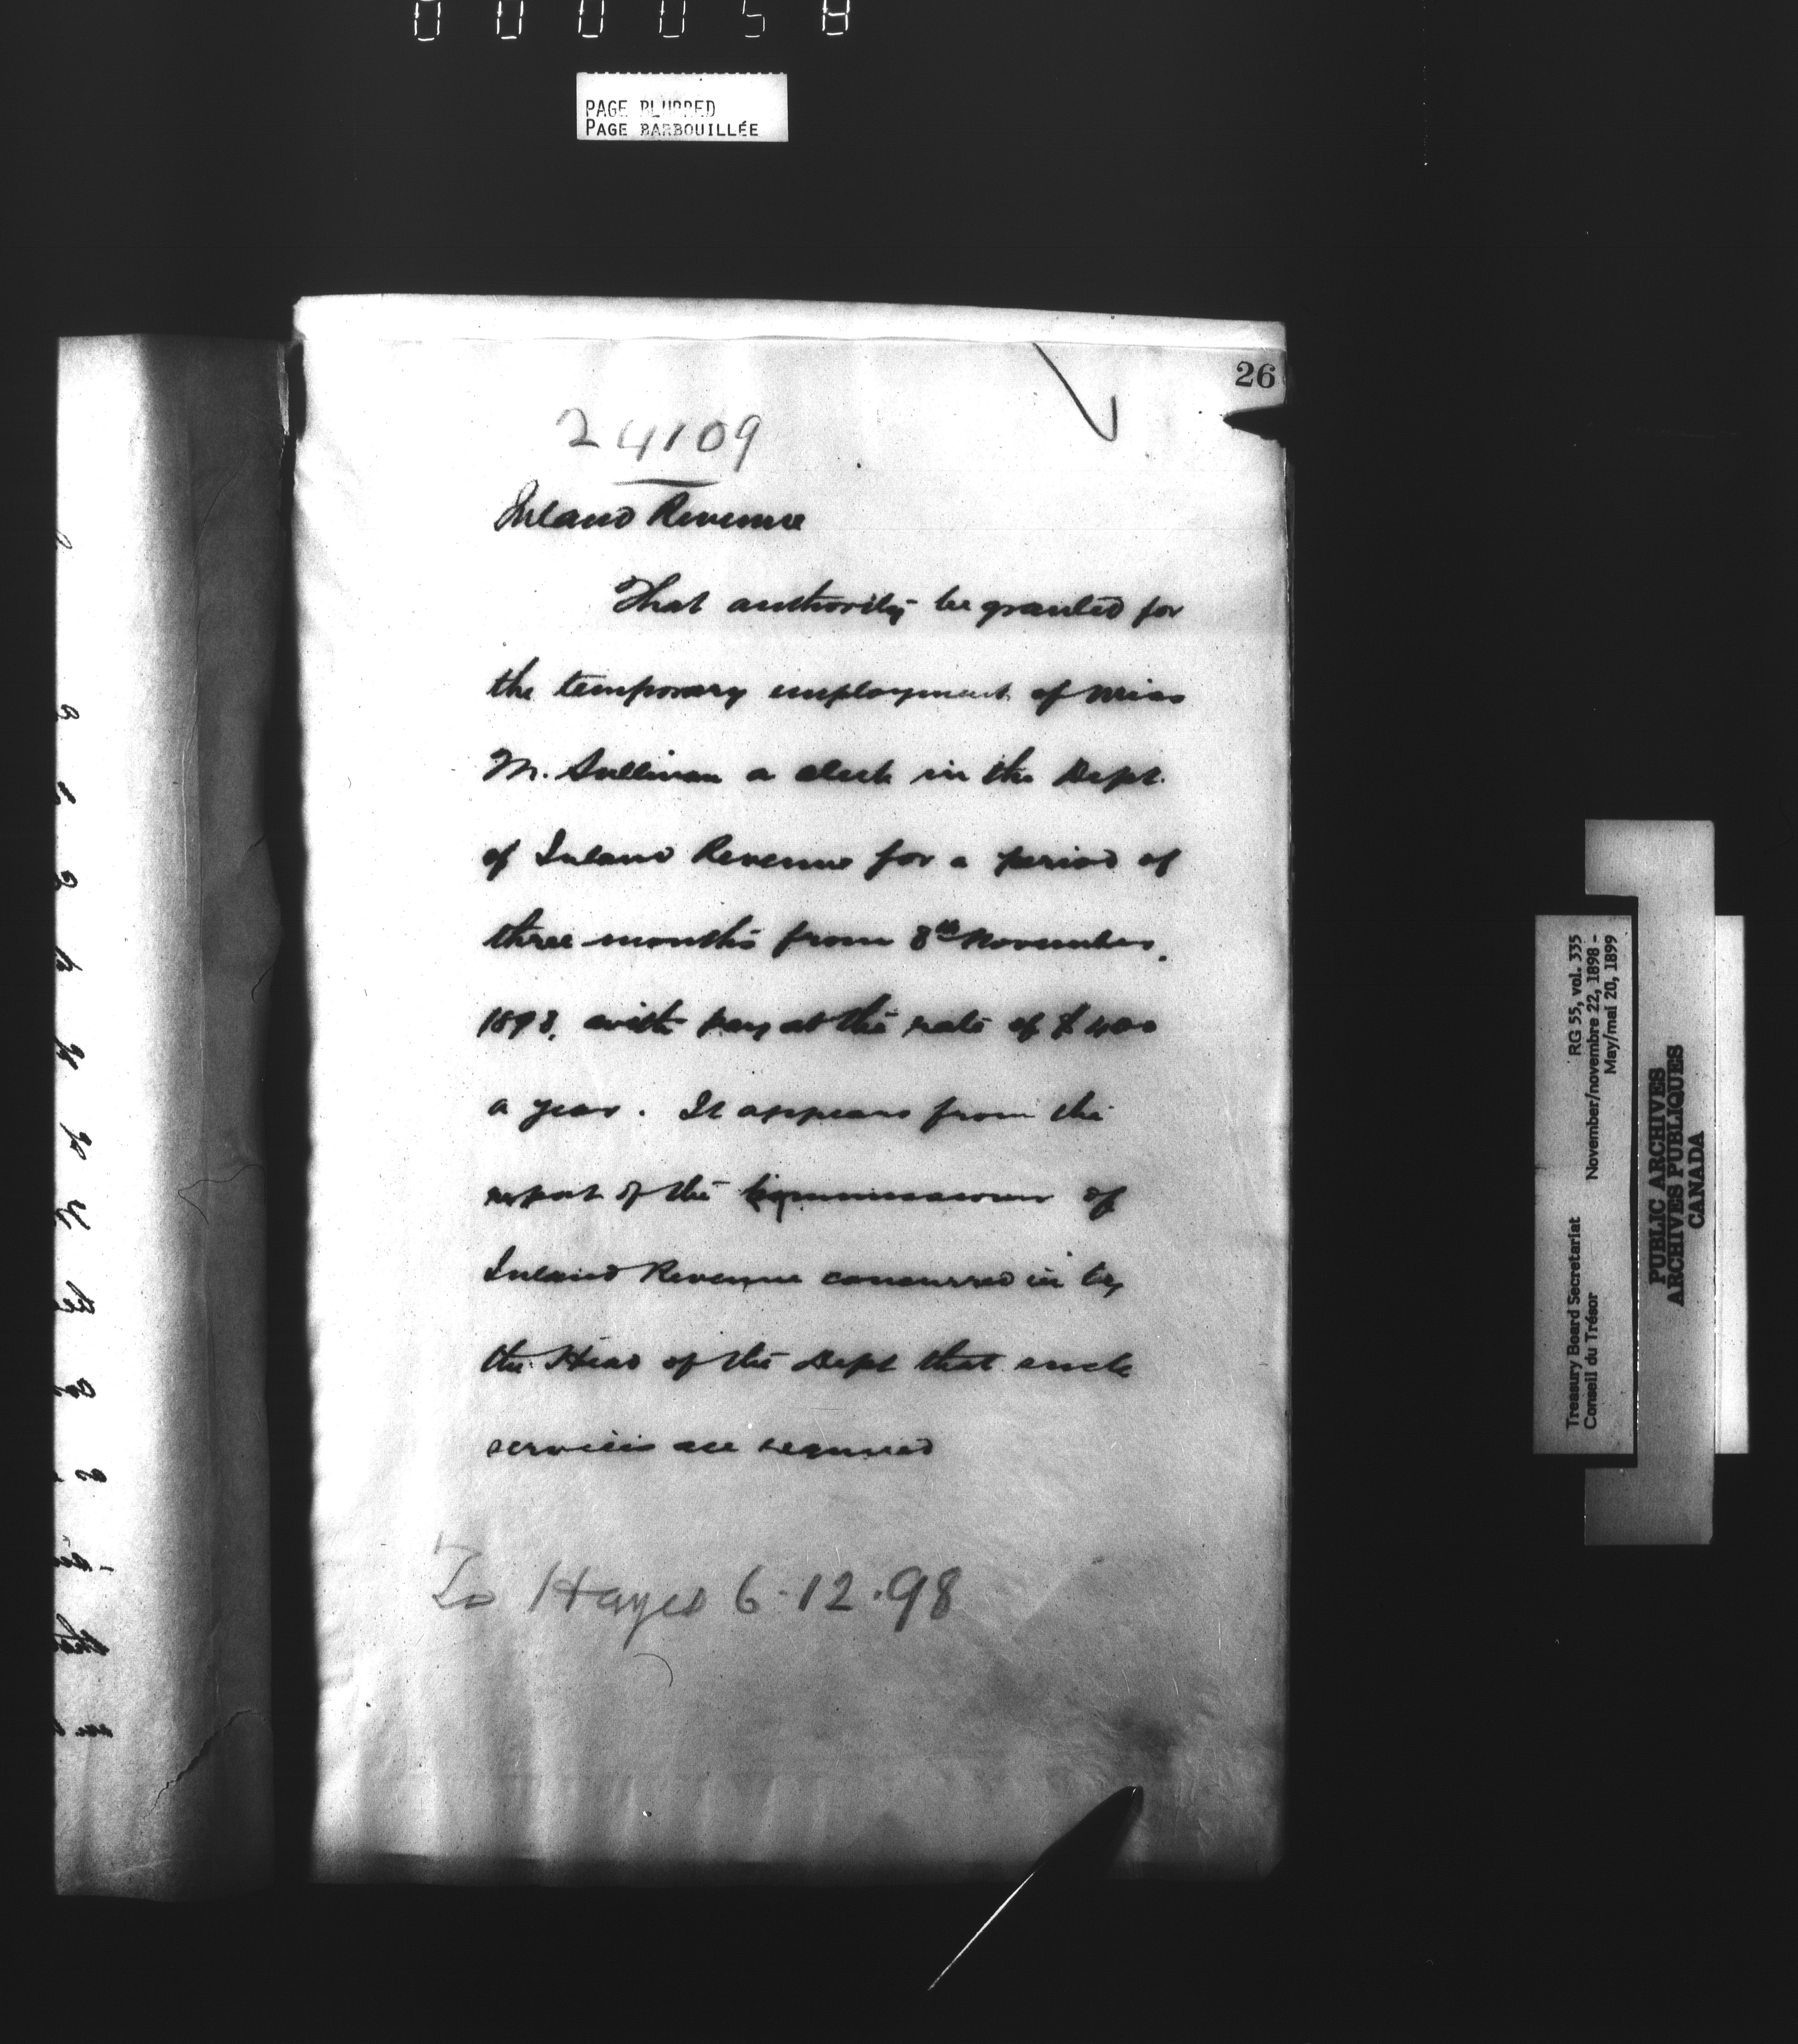 000058
PAGE BLURRED
PAGE BARBOUILLÉE
26
24109
Inland Revenue
That authority be granted for
the temporary employment of Miss
M. Sullivan a clerk in the Dept.
of Inland Revenue for a period of
three months from 8th November.
1898, with pay at the rate of $400
a year. It appears from the
report of the Commissioner of
Inland Revenue concurred in by
the Head of the Dept that such
services are required
To Hayes 6.12.98
Treasury Board Secretariat RG 55, vol. 335
Conseil du Trésor November/novembre 22, 1898 -
May/mai 20, 1899
PUBLIC ARCHIVES
ARCHIVES PUBLIQUES
CANADA